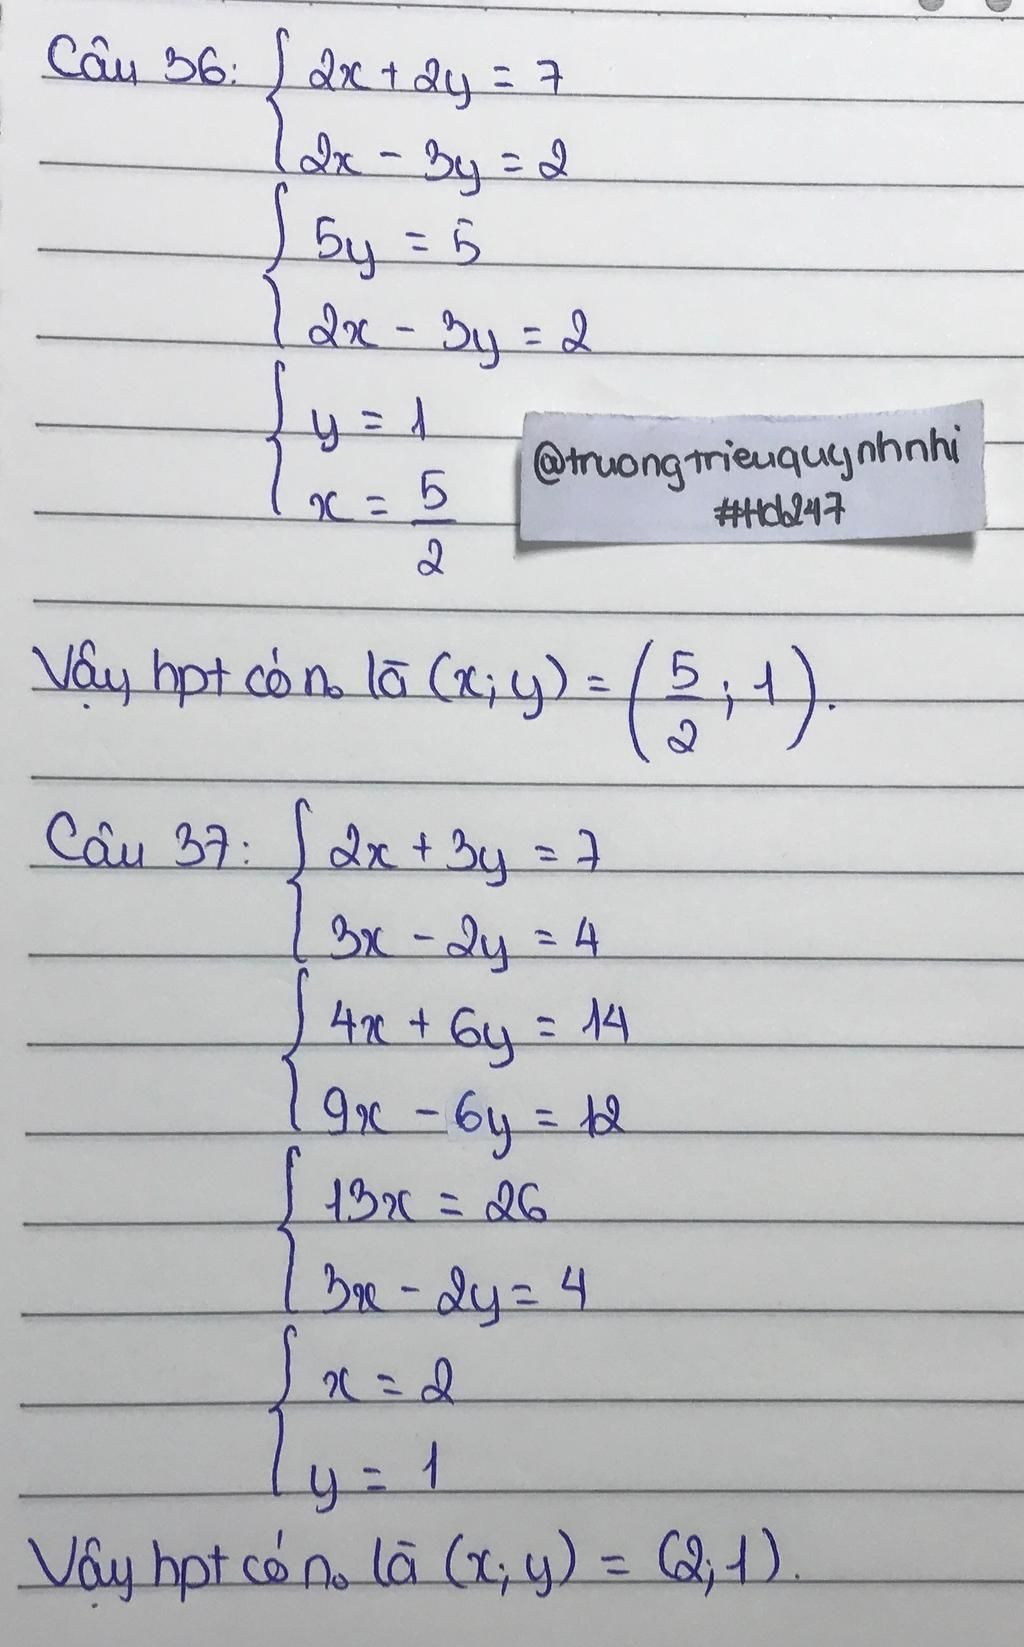 Câu 36: { 2x + 2y = 7
2x - 3y = 2
{ 5y = 5
2x - 3y = 2
{ y = 1
x = 5/2
@truongtrieuquynhnhi
#Hd247
Vậy hpt có no là (x; y) = (5/2; 1).
Câu 37: { 2x + 3y = 7
3x - 2y = 4
{ 4x + 6y = 14
9x - 6y = 12
{ 13x = 26
3x - 2y = 4
{ x = 2
y = 1
Vậy hpt có no là (x; y) = (2; 1).